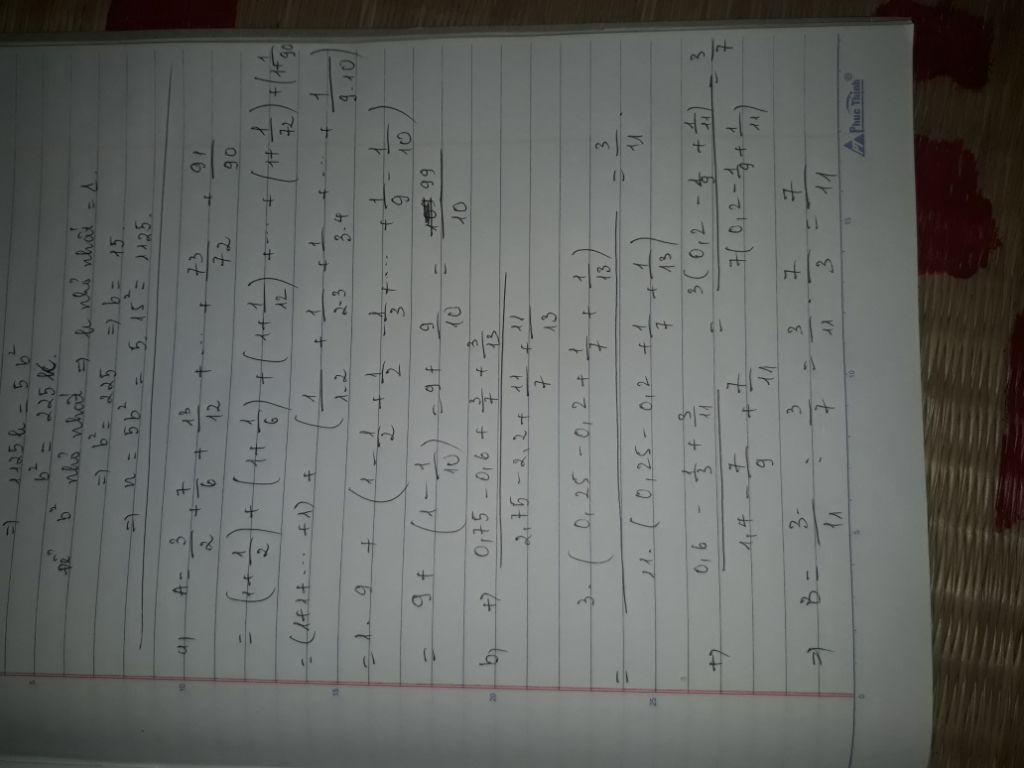 => 1125k = 5b²
b² = 225k.
để b² nhỏ nhất => k nhỏ nhất = 1.
=> b² = 225 => b = 15
=> n = 5b² = 5.15² = 1125.
a) A = 3/2 + 7/6 + 13/12 + ... + 73/72 + 91/90
= (1+1/2) + (1+1/6) + (1+1/12) + .... + (1+1/72) + (1+1/90)
= (1+1+...+1) + (1/1.2 + 1/2.3 + 1/3.4 + .... + 1/9.10)
= 1.9 + (1 - 1/2 + 1/2 - 1/3 + ... + 1/9 - 1/10)
= 9 + (1 - 1/10) = 9 + 9/10 = 99/10
b) +) 0,75 - 0,6 + 3/7 + 3/13 / 2,75 - 2,2 + 11/7 + 11/13
= 3.(0,25 - 0,2 + 1/7 + 1/13) / 11.(0,25 - 0,2 + 1/7 + 1/13) = 3/11
+) 0,6 - 1/3 + 3/11 / 1,4 - 7/9 + 7/11 = 3(0,2 - 1/9 + 1/11) / 7(0,2 - 1/9 + 1/11) = 3/7
=> B = 3/11 : 3/7 = 3/11 . 7/3 = 7/11
Phuc Thinh®
5
10
15
20
25
0
5
10
15